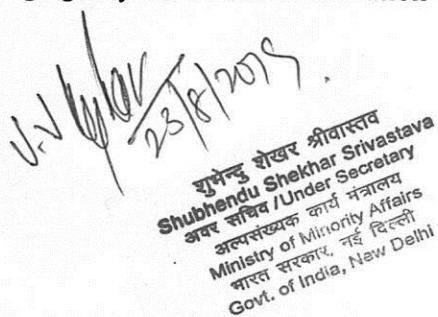 23/8/2019
शुभेन्दु शेखर श्रीवास्तव
Shubhendu Shekhar Srivastava
अवर सचिव /Under Secretary
अल्पसंख्यक कार्य मंत्रालय
Ministry of Minority Affairs
भारत सरकार, नई दिल्ली
Govt. of India, New Delhi